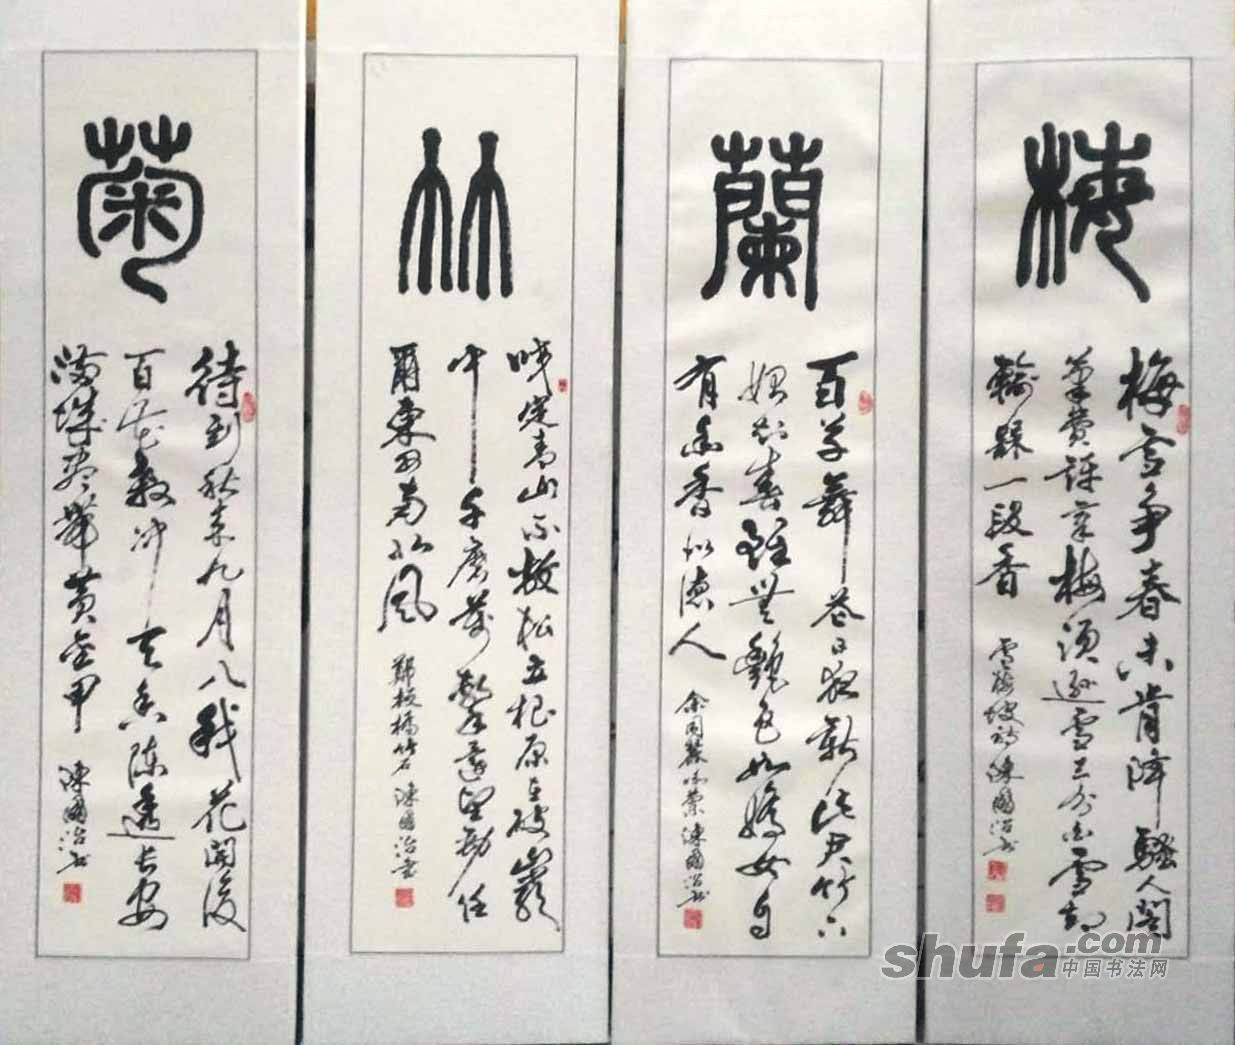 梅
梅雪争春未肯降騷人閣
筆費評章梅須遜雪三分白雪却
輸槑一段香
盧梅坡詩陳國治书
蘭
百草舞花日夜新此君竹下
始知春雖無艷色如嬌女自
有幽香似德人
余同麓咏蘭陳國治书
竹
咬定青山不放松立根原在破巖
中千磨萬擊還堅勁任
爾東西南北風
鄭板橋竹石 陳國治書
菊
待到秋來九月八我花開後
百花殺冲天香陣透長安
滿城盡帶黄金甲
陳國治书
shufa.com
中国书法网